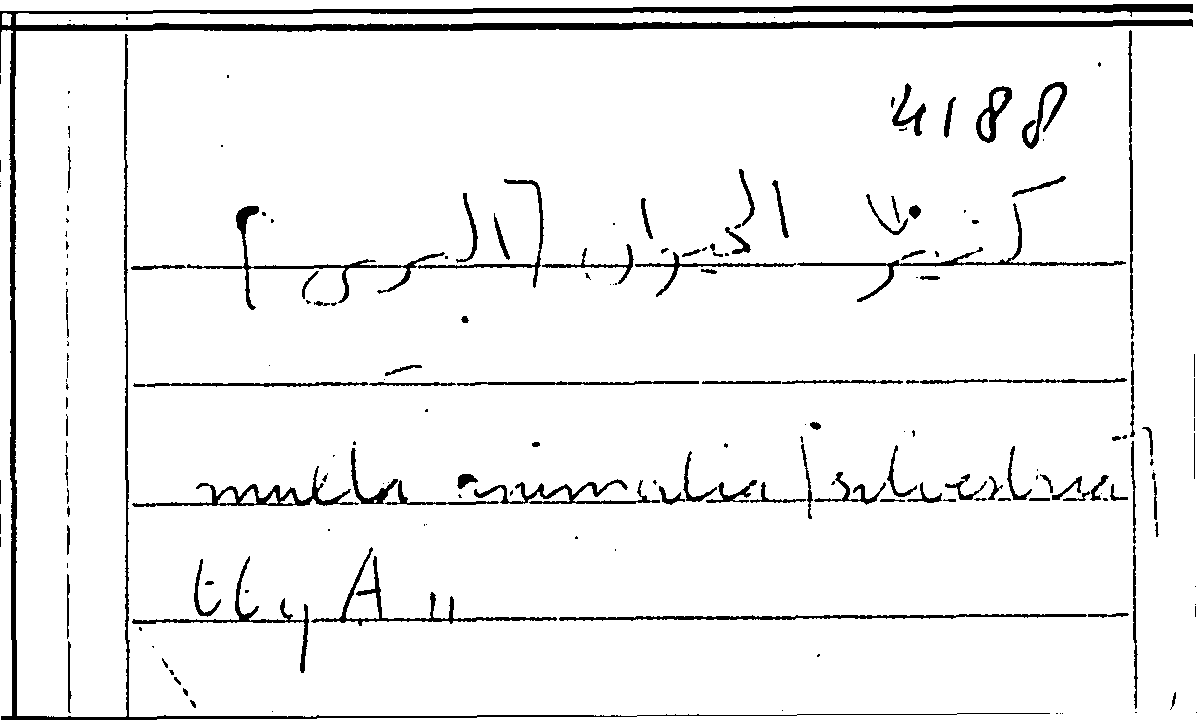 4188
كثير الحيوان [البرى]
multa animalia [silvestria]
A 11